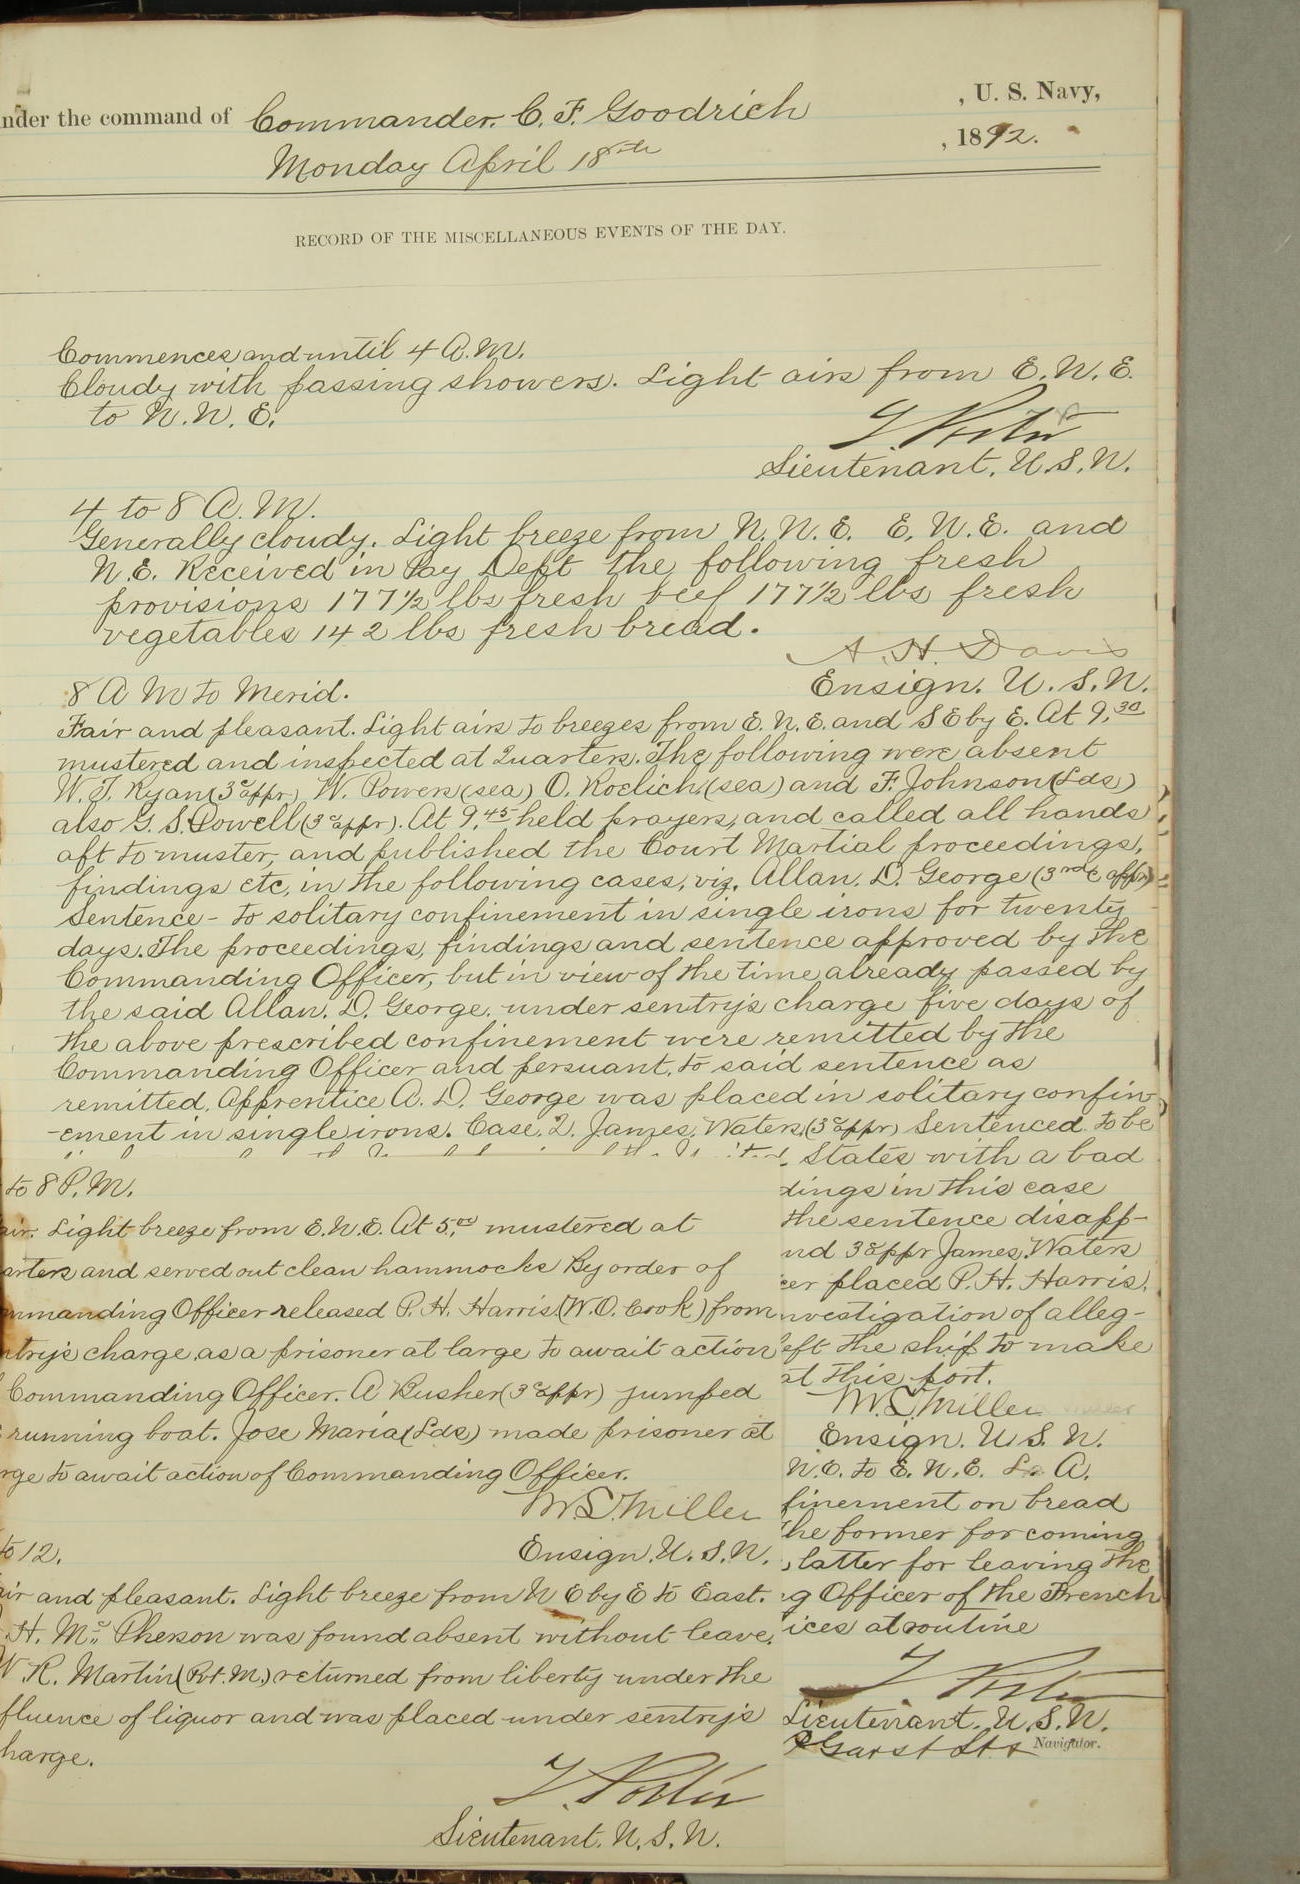 under the command of Commander. C. F. Goodrich , U. S. Navy,
Monday April 18th , 1892.
RECORD OF THE MISCELLANEOUS EVENTS OF THE DAY.
Commences and until 4 A.M.
Cloudy with passing showers. Light airs from E.N.E.
to N.N.E.
T. Porter
Lieutenant. U.S.N.
4 to 8 A.M.
Generally cloudy. Light breeze from N.N.E. E.N.E. and
N.E. Received in Pay Dept the following fresh
provisions 177 1/2 lbs fresh beef 177 1/2 lbs fresh
vegetables 142 lbs fresh bread.
A. H. Davis
Ensign. U.S.N.
8 A M to Merid.
Fair and pleasant. Light airs to breezes from E.N.E. and SE by E. At 9.30
mustered and inspected at Quarters. The following were absent
W. J. Ryan (3c appr) W. Powers (sea) O. Roelich (sea) and F. Johnson (Lds)
also G. S. Powell (3c appr). At 9.45 held prayers, and called all hands
aft to muster, and published the Court Martial proceedings,
findings etc, in the following cases, viz. Allan. D. George (3rd c appr)
Sentence - to solitary confinement in single irons for twenty
days. The proceedings, findings and sentence approved by the
Commanding Officer, but in view of the time already passed by
the said Allan. D. George. under sentry's charge five days of
the above prescribed confinement were remitted by the
Commanding Officer and persuant, to said sentence as
remitted. Apprentice A. D. George was placed in solitary confin-
-ement in single irons. Case. 2. James. Waters. (3c appr) Sentenced to be
States with a bad
dings in this case
the sentence disapp-
nd 3c appr James. Waters
cer placed P. H. Harris.
nvestigation of alleg-
eft the ship to make
at this port.
W.S. Miller
Ensign. U.S.N.
N.E. to E.N.E. A.
finement on bread
the former for coming
, latter for leaving the
g Officer of the French
ices at routine
T Porter
Lieutenant. U.S.N.
Garst Lt Navigator.
to 8 P.M.
air. Light breeze from E.N.E. At 5.00 mustered at
arters and served out clean hammocks By order of
mmanding Officer released P. H. Harris (W.O. Cook) from
ntry's charge as a prisoner at large to await action
Commanding Officer. A Busher (3c appr) jumped
running boat. Jose Maria (Lds) made prisoner at
rge to await action of Commanding Officer.
W.S. Miller
Ensign. U.S.N.
to 12.
air and pleasant. Light breeze from N E by E to East.
H. Mc Pherson was found absent without leave.
W R. Martin (Pvt. M.) returned from liberty under the
fluence of liquor and was placed under sentry's
harge.
T. Porter
Lieutenant. U.S.N.